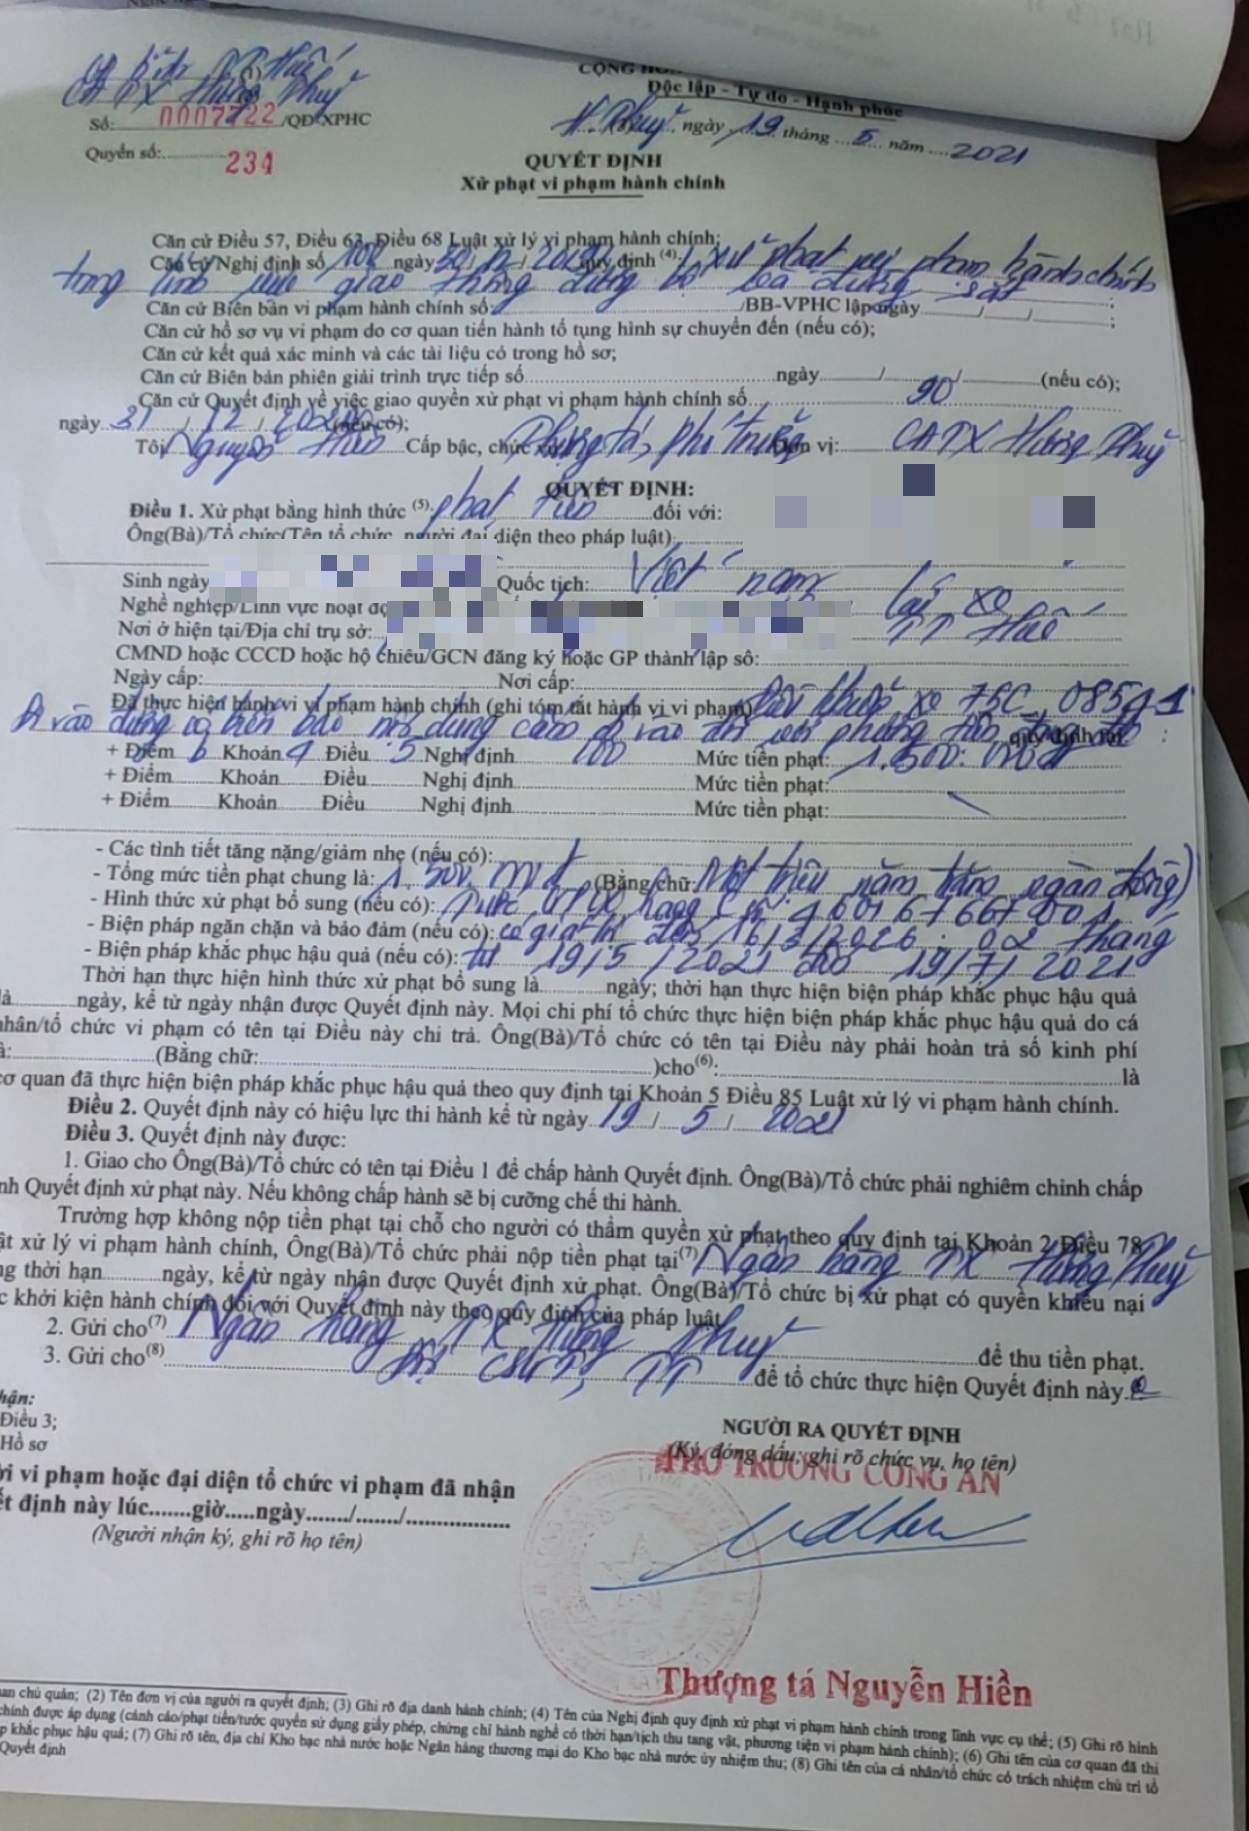 CA tỉnh TT Huế
CA TX Hương Thuỷ
CỘNG HO
Độc lập - Tự do - Hạnh phúc
Số: 0007722 /QĐ-XPHC
H. Thuỷ, ngày 19 tháng 5 năm 2021
Quyển số: 234
QUYẾT ĐỊNH
Xử phạt vi phạm hành chính
Căn cứ Điều 57, Điều 63, Điều 68 Luật xử lý vi phạm hành chính;
Căn cứ Nghị định số 100 ngày 30/12/2019 quy định (4): xử phạt vi phạm hành chính
trong lĩnh vực giao thông đường bộ và đường sắt ;
Căn cứ Biên bản vi phạm hành chính số: /BB-VPHC lập ngày / / ;
Căn cứ hồ sơ vụ vi phạm do cơ quan tiến hành tố tụng hình sự chuyển đến (nếu có);
Căn cứ kết quả xác minh và các tài liệu có trong hồ sơ;
Căn cứ Biên bản phiên giải trình trực tiếp số ngày / / (nếu có);
Căn cứ Quyết định về việc giao quyền xử phạt vi phạm hành chính số 90
ngày 31 / 12 / 2020 (nếu có);
Tôi Nguyễn Hiền Cấp bậc, chức vụ: Thượng tá, phó trưởng Đơn vị: CATX Hương Thuỷ
QUYẾT ĐỊNH:
Điều 1. Xử phạt bằng hình thức (5): phạt tiền đối với:
Ông(Bà)/Tổ chức(Tên tổ chức, người đại diện theo pháp luật):
Sinh ngày Quốc tịch: Việt nam
Nghề nghiệp/Lĩnh vực hoạt độ lái xe
Nơi ở hiện tại/Địa chỉ trụ sở: TT Huế
CMND hoặc CCCD hoặc hộ chiếu/GCN đăng ký hoặc GP thành lập số:
Ngày cấp: Nơi cấp:
Đã thực hiện hành vi vi phạm hành chính (ghi tóm tắt hành vi vi phạm): Điều khiển xe 75C
đi vào đường có biển báo nội dung cấm đi vào đối với phương tiện quy định tại :
+ Điểm b Khoản 4 Điều 5 Nghị định 100 Mức tiền phạt: 1.500.000đ
+ Điểm Khoản Điều Nghị định Mức tiền phạt:
+ Điểm Khoản Điều Nghị định Mức tiền phạt:
- Các tình tiết tăng nặng/giảm nhẹ (nếu có):
- Tổng mức tiền phạt chung là: 1.500.000đ (Bằng chữ: Một triệu năm trăm ngàn đồng)
- Hình thức xử phạt bổ sung (nếu có): Tước GPLX hạng
- Biện pháp ngăn chặn và bảo đảm (nếu có): có giá trị đến 16/3/2026 : 02 tháng
- Biện pháp khắc phục hậu quả (nếu có): từ 19/5/2021 đến 19/7/2021
Thời hạn thực hiện hình thức xử phạt bổ sung là ngày; thời hạn thực hiện biện pháp khắc phục hậu quả
là ngày, kể từ ngày nhận được Quyết định này. Mọi chi phí tổ chức thực hiện biện pháp khắc phục hậu quả do cá
nhân/tổ chức vi phạm có tên tại Điều này chi trả. Ông(Bà)/Tổ chức có tên tại Điều này phải hoàn trả số kinh phí
à: (Bằng chữ: )cho(6): là
cơ quan đã thực hiện biện pháp khắc phục hậu quả theo quy định tại Khoản 5 Điều 85 Luật xử lý vi phạm hành chính.
Điều 2. Quyết định này có hiệu lực thi hành kể từ ngày 19 / 5 / 2021
Điều 3. Quyết định này được:
1. Giao cho Ông(Bà)/Tổ chức có tên tại Điều 1 để chấp hành Quyết định. Ông(Bà)/Tổ chức phải nghiêm chỉnh chấp
nh Quyết định xử phạt này. Nếu không chấp hành sẽ bị cưỡng chế thi hành.
Trường hợp không nộp tiền phạt tại chỗ cho người có thẩm quyền xử phạt theo quy định tại Khoản 2 Điều 78
ật xử lý vi phạm hành chính, Ông(Bà)/Tổ chức phải nộp tiền phạt tại(7) Ngân hàng TX Hương Thuỷ
ng thời hạn ngày, kể từ ngày nhận được Quyết định xử phạt. Ông(Bà)/Tổ chức bị xử phạt có quyền khiếu nại
c khởi kiện hành chính đối với Quyết định này theo quy định của pháp luật.
2. Gửi cho(7) Ngân hàng TX Hương Thuỷ để thu tiền phạt.
3. Gửi cho(8) Đội CSGT, TT để tổ chức thực hiện Quyết định này.
hận:
Điều 3;
Hồ sơ
NGƯỜI RA QUYẾT ĐỊNH
(Ký, đóng dấu; ghi rõ chức vụ, họ tên)
PHÓ TRƯỞNG CÔNG AN
ời vi phạm hoặc đại diện tổ chức vi phạm đã nhận
ết định này lúc.......giờ.....ngày......./......./.................
(Người nhận ký, ghi rõ họ tên)
Thượng tá Nguyễn Hiền
uan chủ quản; (2) Tên đơn vị của người ra quyết định; (3) Ghi rõ địa danh hành chính; (4) Tên của Nghị định quy định xử phạt vi phạm hành chính trong lĩnh vực cụ thể; (5) Ghi rõ hình
chính được áp dụng (cảnh cáo/phạt tiền/tước quyền sử dụng giấy phép, chứng chỉ hành nghề có thời hạn/tịch thu tang vật, phương tiện vi phạm hành chính); (6) Ghi tên của cơ quan đã thi
p khắc phục hậu quả; (7) Ghi rõ tên, địa chỉ Kho bạc nhà nước hoặc Ngân hàng thương mại do Kho bạc nhà nước ủy nhiệm thu; (8) Ghi tên của cá nhân/tổ chức có trách nhiệm chủ trì tổ
Quyết định